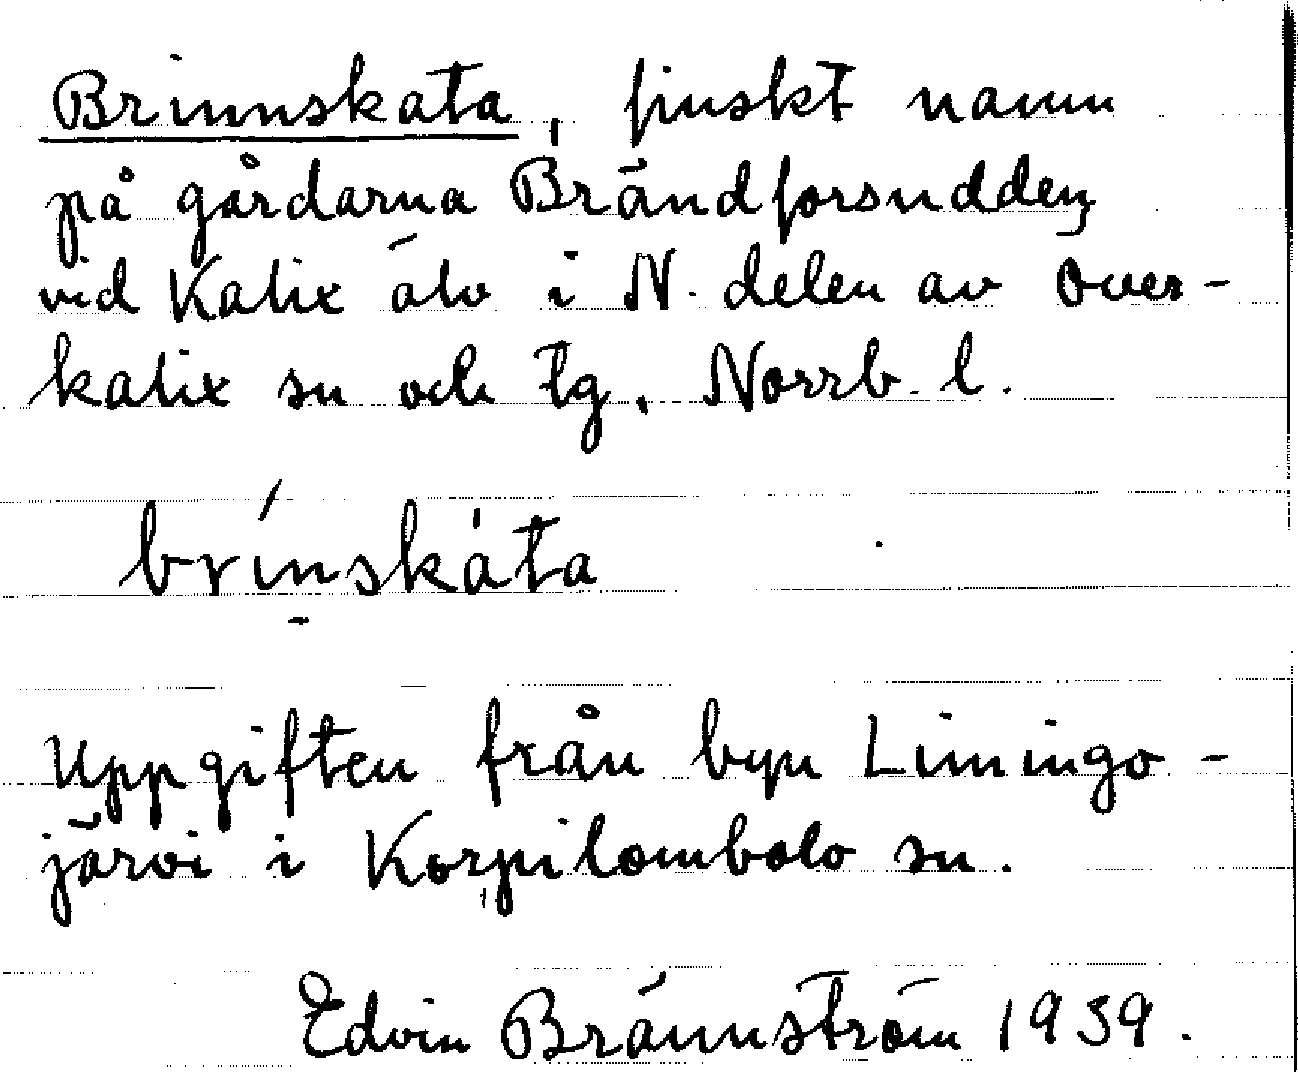 Brinnskata, finskt namn
på gårdarna Brändforsudden
vid Kalix älv i N. delen av Över-
kalix sn och tg, Norrb. l.
brínskáta
Uppgiften från byn Limingo-
järvi i Korpilombolo sn.
Edvin Brännström 1939.